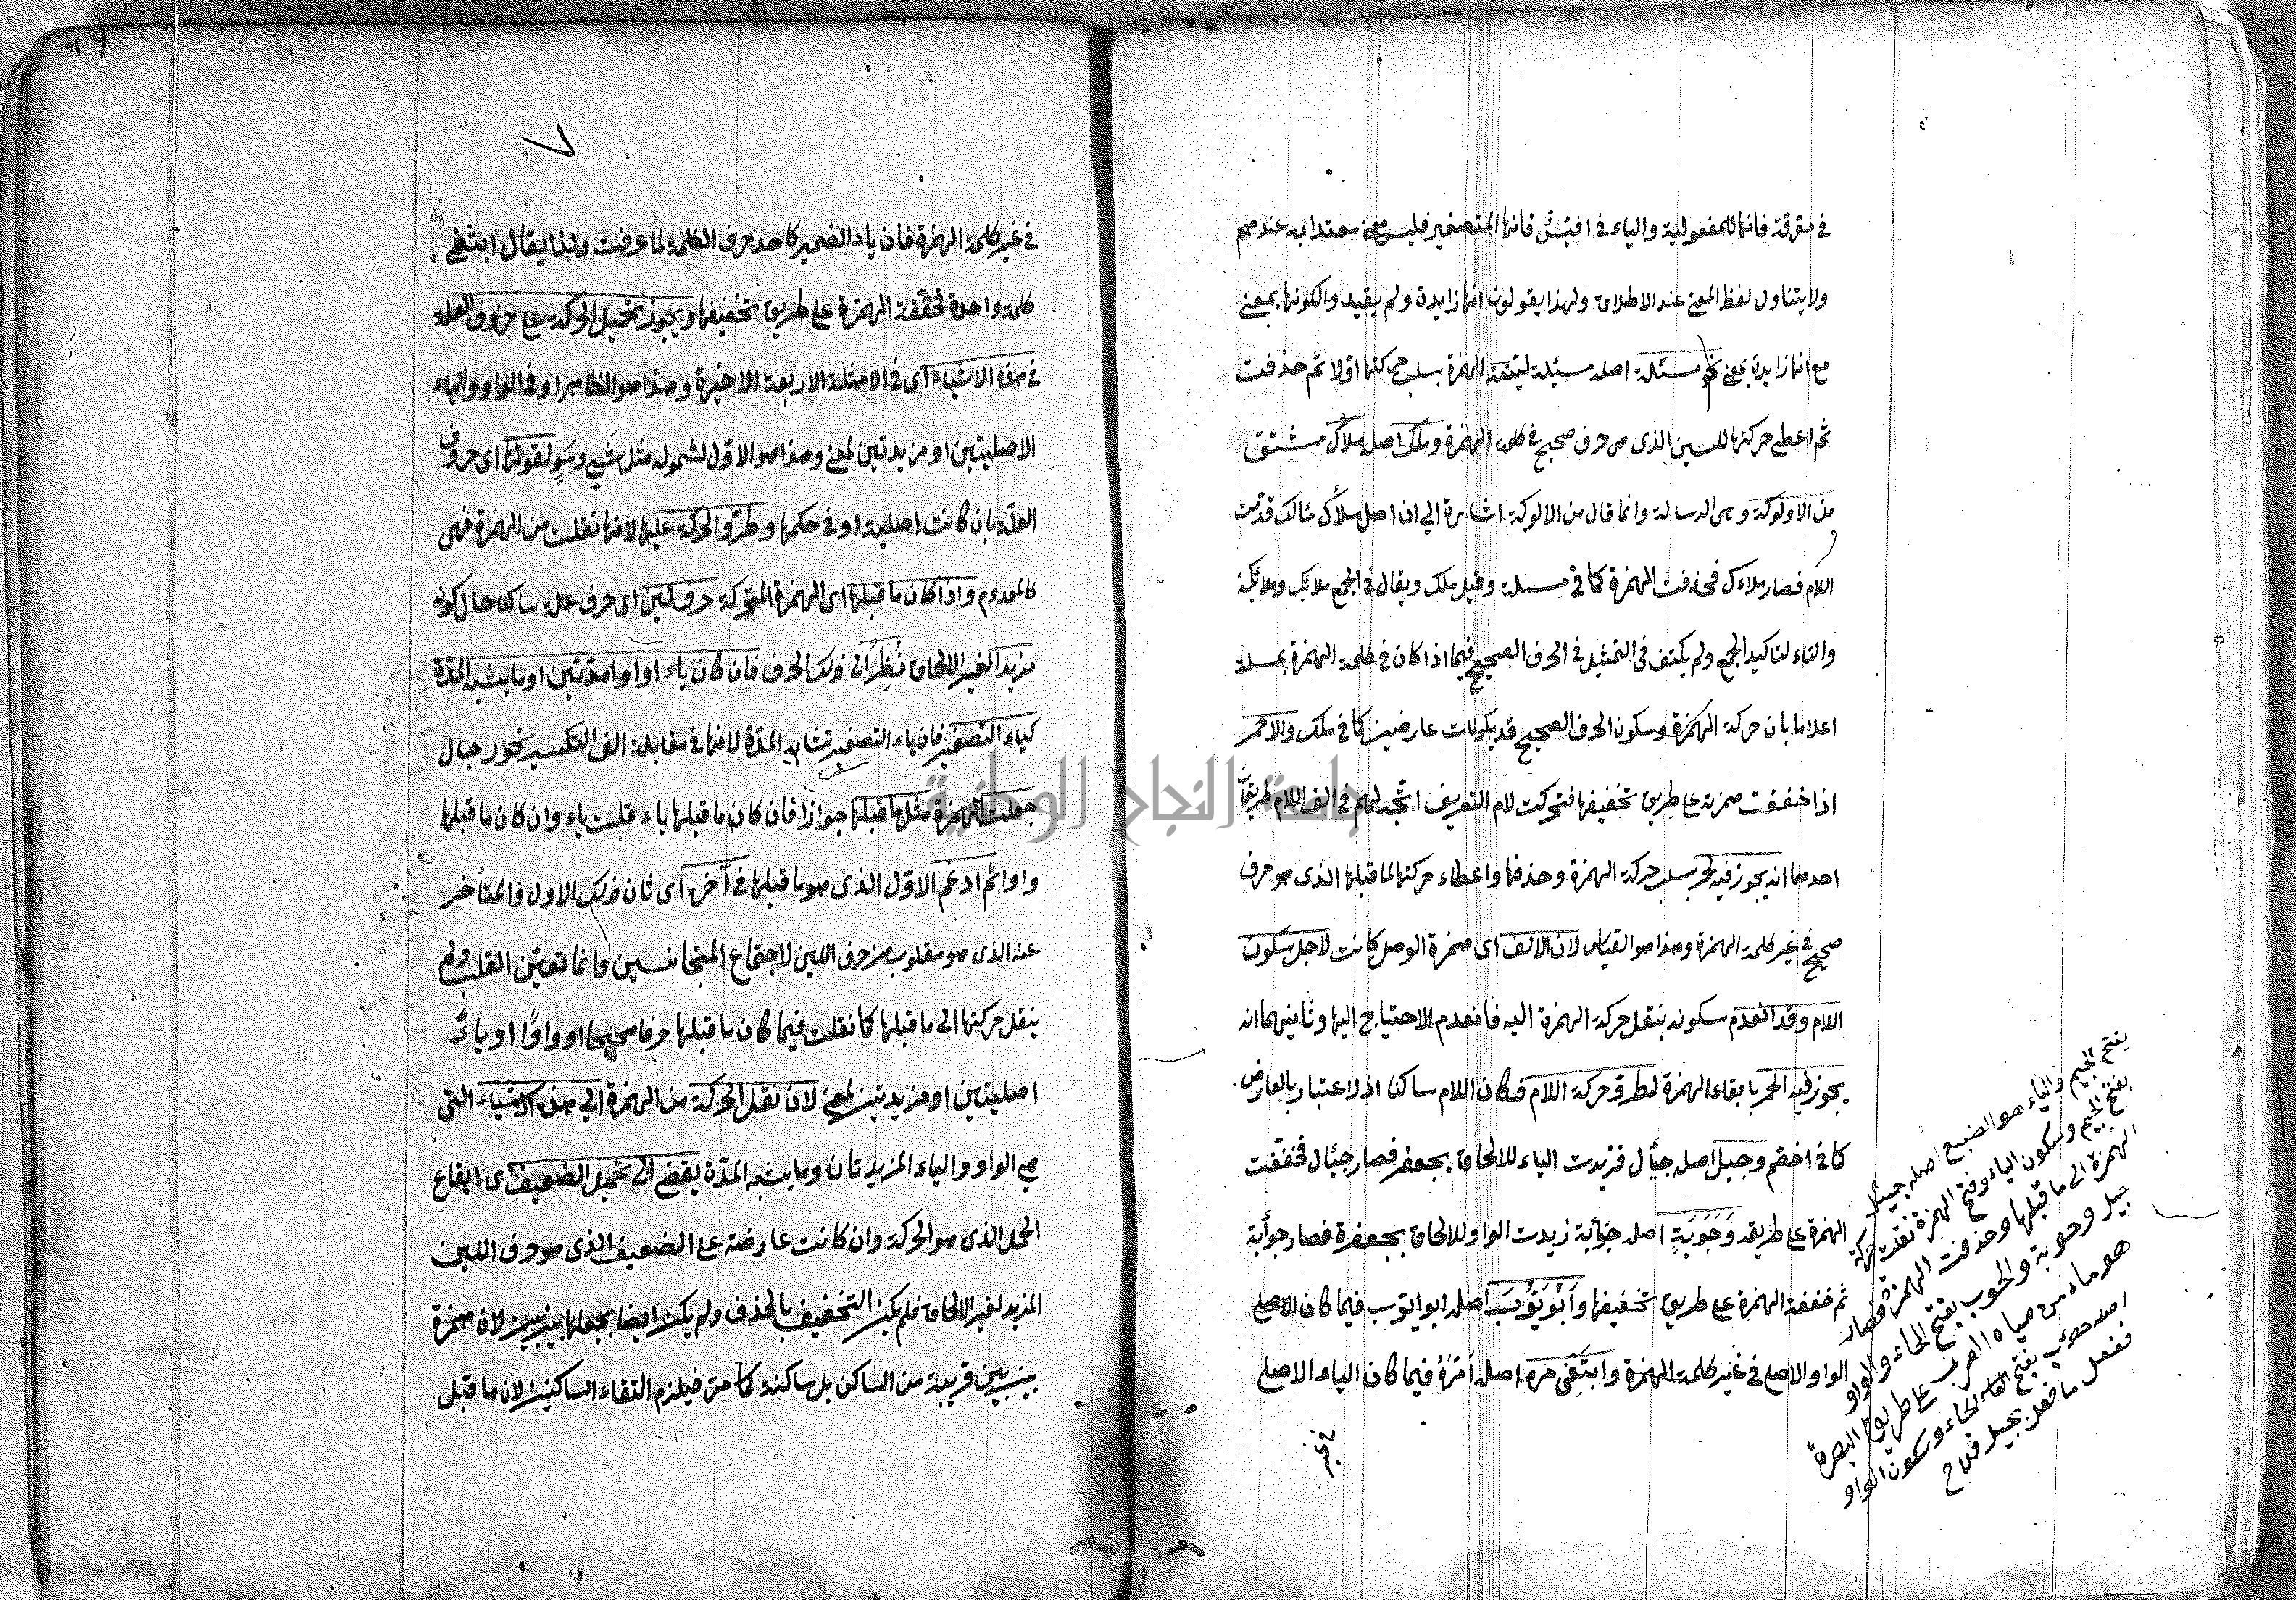 في مقرقة فانها للمفعولية والياء في افيئس فانها للتصغير فليس معنى معتدا به عندهم
ولا يتناول لفظ المعنى عند الاطلاق ولهذا يقولون انها زايدة ولم يقيد والكونها بمعنى
مع انها زايدة بمعنى نحو مسئلة اصله مسئلة لينة الهمزة بسلب حركتها اولا ثم حذفت
ثم اعطى حركتها للسين الذى هو حرف صحيح في كلمة الهمزة وملك اصله ملأك مشتق
من الالوكة وهى الرسالة وانما قال من الالوكة اشارة الى ان اصل ملأك مألك قدمت
اللام فصار ملاءك فحذفت الهمزة كما في مسلة وقيل ملك ويقال في الجمع ملائك وملائكة
والتاء لتاكيد الجمع ولم يكتف في التمثيل في الحرف الصحيح فيما اذا كان في كلمة الهمزة بمسلة
اعلاما بان حركة الهمزة وسكون الحرف الصحيح قد يكونان عارضين كما في ملك والاحمر
اذا خففت همزته على طريق تخفيفها فتحركت لام التعريف اتجه لهم في الف اللام طريقان
احدهما انه يجوز فيه لحمر بسلب حركة الهمزة وحذفها واعطاء حركتها لما قبلها الذى هو حرف
صحيح في غير كلمة الهمزة وهذا هو القياس لان الالف اى همزة الوصل كانت لاجل سكون
اللام وقد انعدم سكونه بنقل حركة الهمزة اليه فانعدم الاحتياج اليها وثانيهما انه
يجوز فيه الحمر بابقاء الهمزة لطرو حركة اللام فكان اللام ساكنا اذ لا اعتبار بالعارض
كما في اخصم وجيل اصله جيأل فزيدت الياء للالحاق بجعفر فصار جيئال فخففت
الهمزة على طريقه وجوبة اصله جوأبة زيدت الواو للالحاق بجعفرة فصار جوأبة
ثم خففة الهمزة على طريق تخفيفها وابويوب اصله ابو ايوب فيما كان الاصلى
الواو والاصلى في غير كلمة الهمزة وابتغى مره اصله امره فيما كان الياء الاصلى
في غير
يفتح الجيم والياء هو الضبع اصله جيئل
بفتح الجيم وسكون الياء وفتح الهمزة نقلت حركة
الهمزة الى ما قبلها وحذفت الهمزة فصار
جيل وحوبة والحوب بفتح الحاء والواو
هو ماء من مياه العرب على طريق البصرة
اصله حوءب بفتح الحاء وسكون الواو
ففعل ما فعل بجيل فلاح
٧
في غير كلمة الهمزة فان ياء الضمير كاحد حرف الكلمة لما عرفت ولذا يقال ابتغى
كلمة واحدة فخففة الهمزة على طريق تخفيفها ويجوز تحميل الحركة على حروف العلة
في هذه الاشياء اى في الامثلة الاربعة الاخيرة وهذا هو الظاهر او في الواو والياء
الاصليتين او مزيدتين لمعنى وهذا هو الاول لشموله مثل شي وسو لقوتها اى حروف
العلة بان كانت اصلية او في حكمها وطرو الحركة عليها لانها نقلت من الهمزة فهى
كالمعدوم واذا كان ما قبلها اى الهمزة المتحركة حرف لين اى حرف علة ساكنا حال كونه
مزيدا لغير الالحاق نظر الى ذلك الحرف فان كان ياء او واوا مدتين او ما يشبه المدة
كياء التصغير فان ياء التصغير تشابه المدة لانها في مقابلة الف التكسير نحو رجال
جعلت الهمزة مثل ما قبلها جوازا فان كان ما قبلها ياء قلبت ياء وان كان ما قبلها
واوا ثم ادغم الاول الذى هو ما قبلها في آخر اى ثان ذلك الاول والمتأخر
عنه الذى هو مقلوب من حرف اللين لاجتماع المتجانسين وانما تعين القلب ولم
ينقل حركتها الى ما قبلها كما نقلت فيما كان ما قبلها حرفا صحيحا او واوًا او ياءً
اصليتين او مزيدتين لمعنى لان نقل الحركة من الهمزة الى هذه الاشياء التى
هى الواو والياء المزيدتان وما يشبه المدة يفضى الى تحميل الضعيف اى ايقاع
الحمل الذى هو الحركة وان كانت عارضة على الضعيف الذى هو حرف اللين
المزيد لغير الالحاق فلم يكن التخفيف بالحذف ولم يكن ايضا بجعلها بين بين لان همزة
بين بين قريبة من الساكن بل ساكنة كما مر فيلزم التقاء الساكنين لان ما قبلى
جامعة النجاح الوطنية